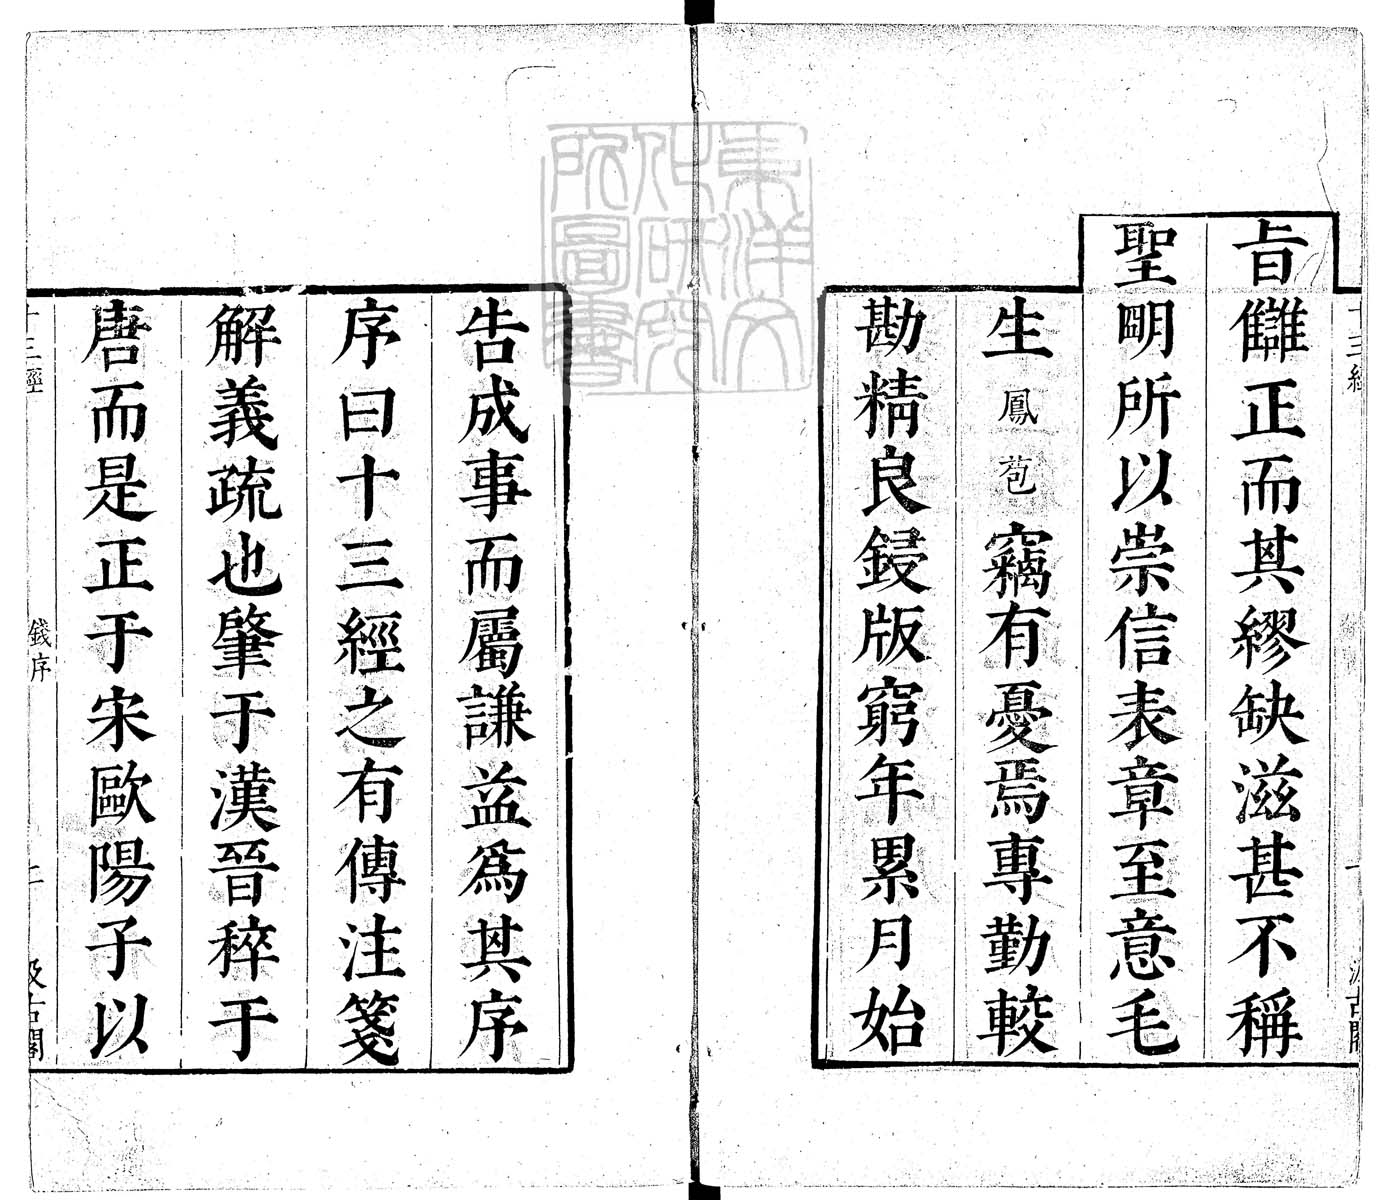 旨讎正而其繆缺滋甚不稱
聖明所以崇信表章至意毛
生鳳苞竊有憂焉專勤較
勘精良鋟版窮年累月始
告成事而屬謙益爲其序
序曰十三經之有傳注箋
解義疏也肇于漢晉稡于
唐而是正于宋歐陽子以
十三經
錢序
二
汲古閣
東洋文
化研究
所圖書